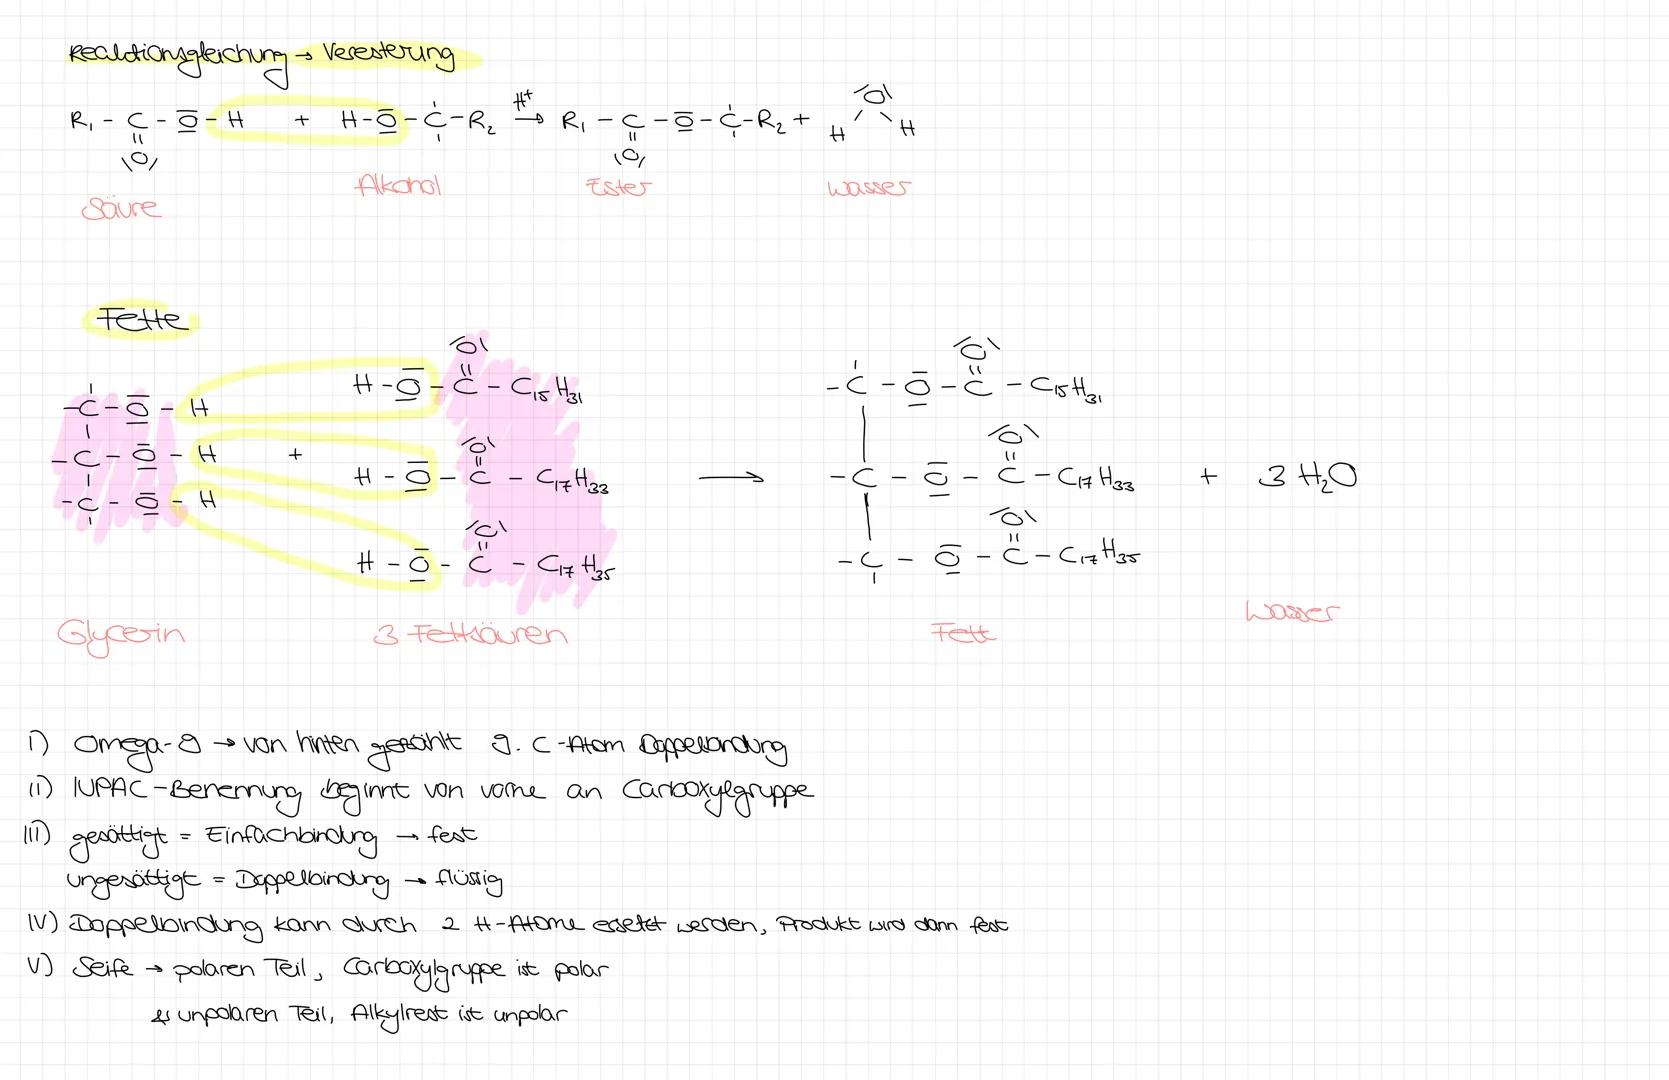 Reaktionsgleichung → Veresterung
R₁ - C - O - H + H-O-C-R₂ H⁺→ R₁ - C - O - C-R₂ + O
|| || H H
O O
Säure Alkohol Ester Wasser
Fette
O O
-C-O-H H-O-C-C₁₅H₃₁ -C-O-C-C₁₅H₃₁
O O
-C-O-H + H-O-C-C₁₇H₃₃ → -C-O-C-C₁₇H₃₃ + 3 H₂O
O O
-C-O-H H-O-C-C₁₇H₃₅ -C-O-C-C₁₇H₃₅
Glycerin 3 Fettsäuren Fett Wasser
I) Omega-9 → von hinten gezählt 9. C-Atom Doppelbindung
II) IUPAC-Benennung beginnt von vorne an Carboxylgruppe
III) gesättigt = Einfachbindung → fest
ungesättigt = Doppelbindung → flüssig
IV) Doppelbindung kann durch 2 H-Atome ersetzt werden, Produkt wird dann fest
V) Seife → polaren Teil, Carboxylgruppe ist polar
↳ unpolaren Teil, Alkylrest ist unpolar